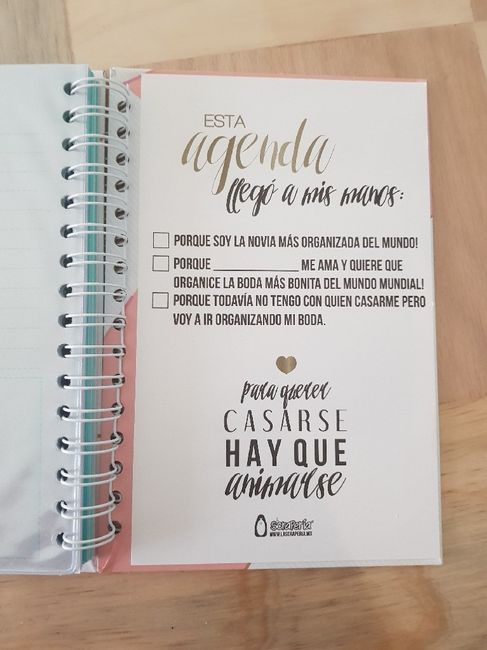 ESTA
agenda
llegó a mis manos:
PORQUE SOY LA NOVIA MÁS ORGANIZADA DEL MUNDO!
PORQUE ______________ ME AMA Y QUIERE QUE
ORGANICE LA BODA MÁS BONITA DEL MUNDO MUNDIAL!
PORQUE TODAVÍA NO TENGO CON QUIEN CASARME PERO
VOY A IR ORGANIZANDO MI BODA.
para querer
CASARSE
HAY QUE
animarse
scraperia
WWW.LASCRAPERIA.MX